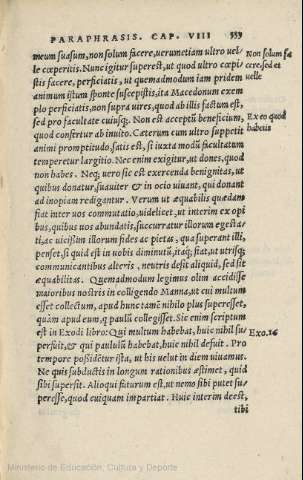 PARAPHRASIS. CAP. VIII 339
meum suasum, non solum facere, verumetiam ultro vel-
le cœperitis. Nunc igitur superest, ut quod ultro cœpi-
stis facere, perficiatis, ut quemadmodum iam pridem
animum istum sponte suscepistis, ita Macedonum exem
plo perficiatis, non supra vires, quod ab illis factum est,
sed pro facultate cuiusq;. Non est acceptū beneficium,
quod confertur ab inuito. Cæterum cum ultro suppetit
animi promptitudo, satis est, si iuxta modū facultatum
temperetur largitio. Nec enim exigitur, ut dones, quod
non habes. Neq; vero sic est exercenda benignitas, ut
quibus donatur, suauiter & in ocio uiuant, qui donant
ad inopiam redigantur. Verum ut æquabilis quædam
fiat inter uos commutatio, uidelicet, ut interim ex opi
bus, quibus uos abundatis, succurratur illorum egesta-
ti, ac uicissim illorum fides ac pietas, qua superant illi,
penset, si quid est in uobis diminutū, itaq; fiat, ut utrisq;
communicantibus alteris, neutris desit aliquid, sed sit
æquabilitas. Quemadmodum legimus olim accidisse
maioribus nostris in colligendo Manna, ut cui multum
esset collectum, apud hunc tamē nihilo plus superesset,
quàm apud eum, q̃ paulū collegisset. Sic enim scriptum
est in Exodi libro: Qui multum habebat, huic nihil su-
perfuit, & qui paululū habebat, huic nihil defuit. Pro
tempore possidētur ista, ut his uelut in diem uiuamus.
Ne quis subductis in longum rationibus æstimet, quid
sibi supersit. Alioqui futurum est, ut nemo sibi putet su-
peresse, quod cuiquam impartiat. Huic interim deest,
tibi
Non solum fa
cere, sed et
uelle
Ex eo quod
habetis
Exo.16
Ministerio de Educación, Cultura y Deporte